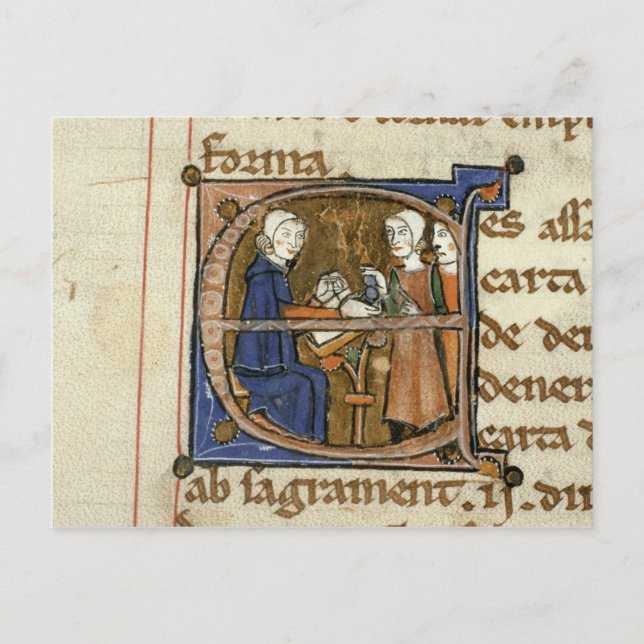 forma
es assa
carta
de den
dener
carta d
ab sagrament. ij. din